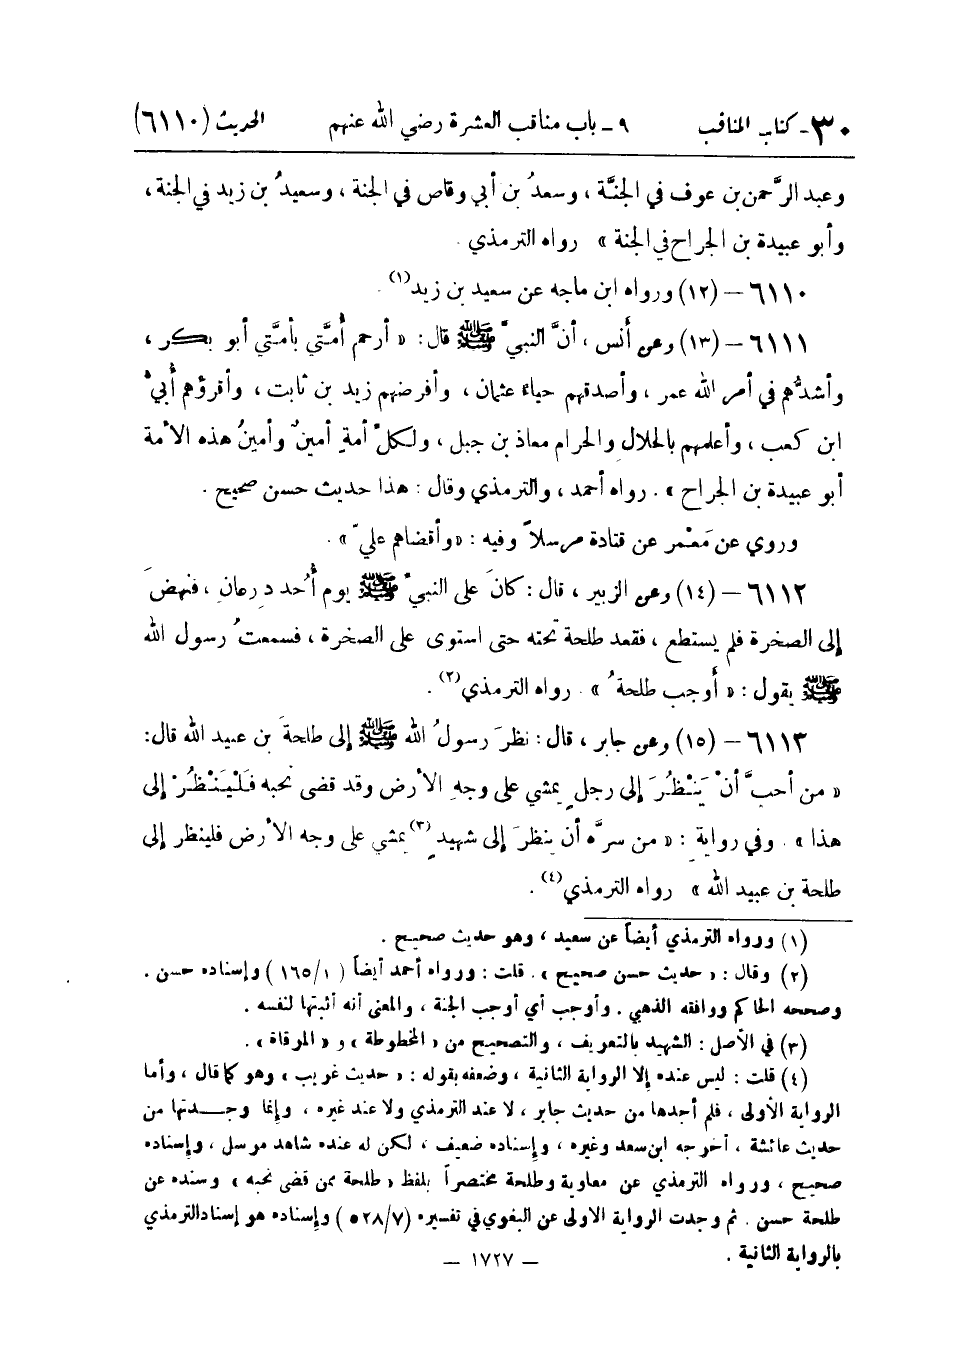 ٣٠ـ كتاب المناقب ٩ ـ باب مناقب العشرة رضي الله عنهم الحديث (٦١١٠)
وعبد الرَّحمن بن عوف في الجنَّة ، وسعدُ بن أبي وقاص في الجنة ، وسعيدُ بن زيد في الجنة ،
وأبو عبيدة بن الجراح في الجنة » رواه الترمذي .
٦١١٠ – (١٢) ورواه ابن ماجه عن سعيد بن زيد(١) .
٦١١١ – (١٣) وعن أنس ، أنَّ النبيَّ ﷺ قال : « أرحم أُمَّتي بأمَّتي أبو بكر ،
وأشدُّهم في أمر الله عمر ، وأصدقهم حياءً عثمان ، وأفرضهم زيد بن ثابت ، وأقرؤهم أُبيُّ
ابن كعب ، وأعلمهم بالحلالِ والحرام معاذ بن جبل ، ولكلِّ أمةٍ أمينٌ وأمينُ هذه الأمة
أبو عبيدة بن الجراح » . رواه أحمد ، والترمذي وقال : هذا حديث حسن صحيح .
وروي عن مَعْمر عن قتادة مرسلاً وفيه : «وأقضاهم عليّ» .
٦١١٢ – (١٤) وعن الزبير ، قال : كانَ على النبيِّ ﷺ يوم أُحد درعانِ ، فنهضَ
إلى الصخرة فلم يستطع ، فقعد طلحة تحته حتى استوى على الصخرة ، فسمعتُ رسول الله
ﷺ يقول : « أوجب طلحةُ » . رواه الترمذي(٢) .
٦١١٣ – (١٥) وعن جابر ، قال : نظرَ رسولُ الله ﷺ إلى طلحةَ بن عبيد الله قال :
« من أحبَّ أنْ يَنْظُرَ إلى رجلٍ يمشي على وجهِ الأرض وقد قضى نحبه فَلْيَنْظُرْ إلى
هذا » . وفي روايةٍ : « من سرَّه أن ينظرَ إلى شهيدٍ(٣) يمشي على وجه الأرض فلينظر إلى
طلحة بن عبيد الله » رواه الترمذي(٤) .
(١) ورواه الترمذي أيضاً عن سعيد ، وهو حديث صحيح .
(٢) وقال : « حديث حسن صحيح » . قلت : ورواه أحمد أيضاً ( ١/ ١٦٥ ) وإسناده حسن .
وصححه الحاكم ووافقه الذهبي . وأوجب أي أوجب الجنة ، والمعنى أنه أثبتها لنفسه .
(٣) في الأصل : الشهيد بالتعريف ، والتصحيح من « المخطوطة » و « المرقاة » .
(٤) قلت : ليس عنده إلا الرواية الثانية ، وضعفه بقوله : « حديث غريب » وهو كما قال ، وأما
الرواية الأولى ، فلم أجدها من حديث جابر ، لا عند الترمذي ولا عند غيره ، وإنما وجدتها من
حديث عائشة ، أخرجه ابن سعد وغيره ، وإسناده ضعيف ، لكن له عنده شاهد مرسل ، وإسناده
صحيح ، ورواه الترمذي عن معاوية وطلحة مختصراً بلفظ « طلحة ممن قضى نحبه » وسنده عن
طلحة حسن . ثم وجدت الرواية الأولى عن البغوي في تفسيره (٧/ ٥٢٨) وإسناده هو إسناد الترمذي
بالرواية الثانية .
– ١٧٢٧ –